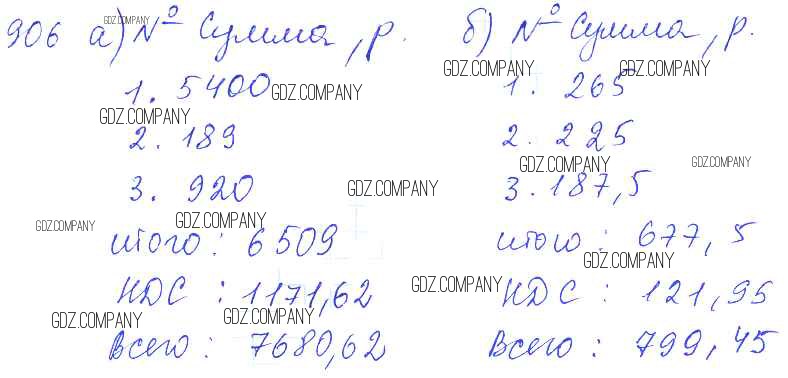 906 а) № Сумма, р. б) № Сумма, р.
GDZ.COMPANY
GDZ.COMPANY GDZ.COMPANY
1. 5400 1. 265
GDZ.COMPANY
GDZ.COMPANY
2. 189 2. 225
GDZ.COMPANY GDZ.COMPANY
3. 920 3. 187,5
GDZ.COMPANY
GDZ.COMPANY GDZ.COMPANY
итого: 6509 итого: 677,5
GDZ.COMPANY
НДС : 1171,62 НДС : 121,95
GDZ.COMPANY
GDZ.COMPANY GDZ.COMPANY
Всего: 7680,62 Всего: 799,45